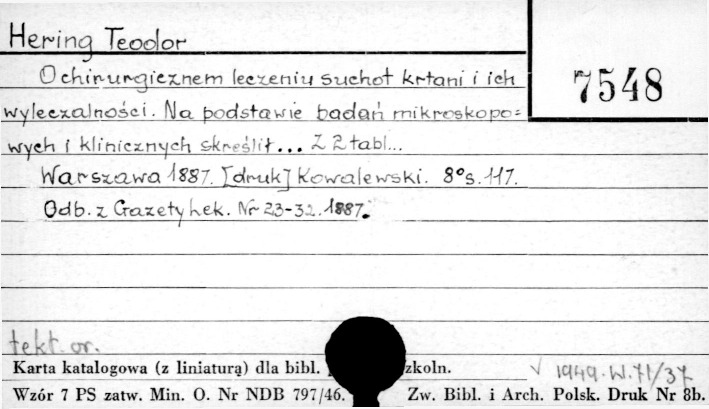 Hering Teodor
7548
O chirurgicznem leczeniu suchot krtani i ich
wyleczalności. Na podstawie badań mikroskopo=
wych i klinicznych skreślił... Z 2 tabl...
Warszawa 1887. [druk] Kowalewski. 8° s. 117.
Odb. z Gazety Lek. Nr 23-32. 1887.
tekt. or.
Karta katalogowa (z liniaturą) dla bibl. zkoln.
√ 1949.W.71/37
Wzór 7 PS zatw. Min. O. Nr NDB 797/46. Zw. Bibl. i Arch. Polsk. Druk Nr 8b.